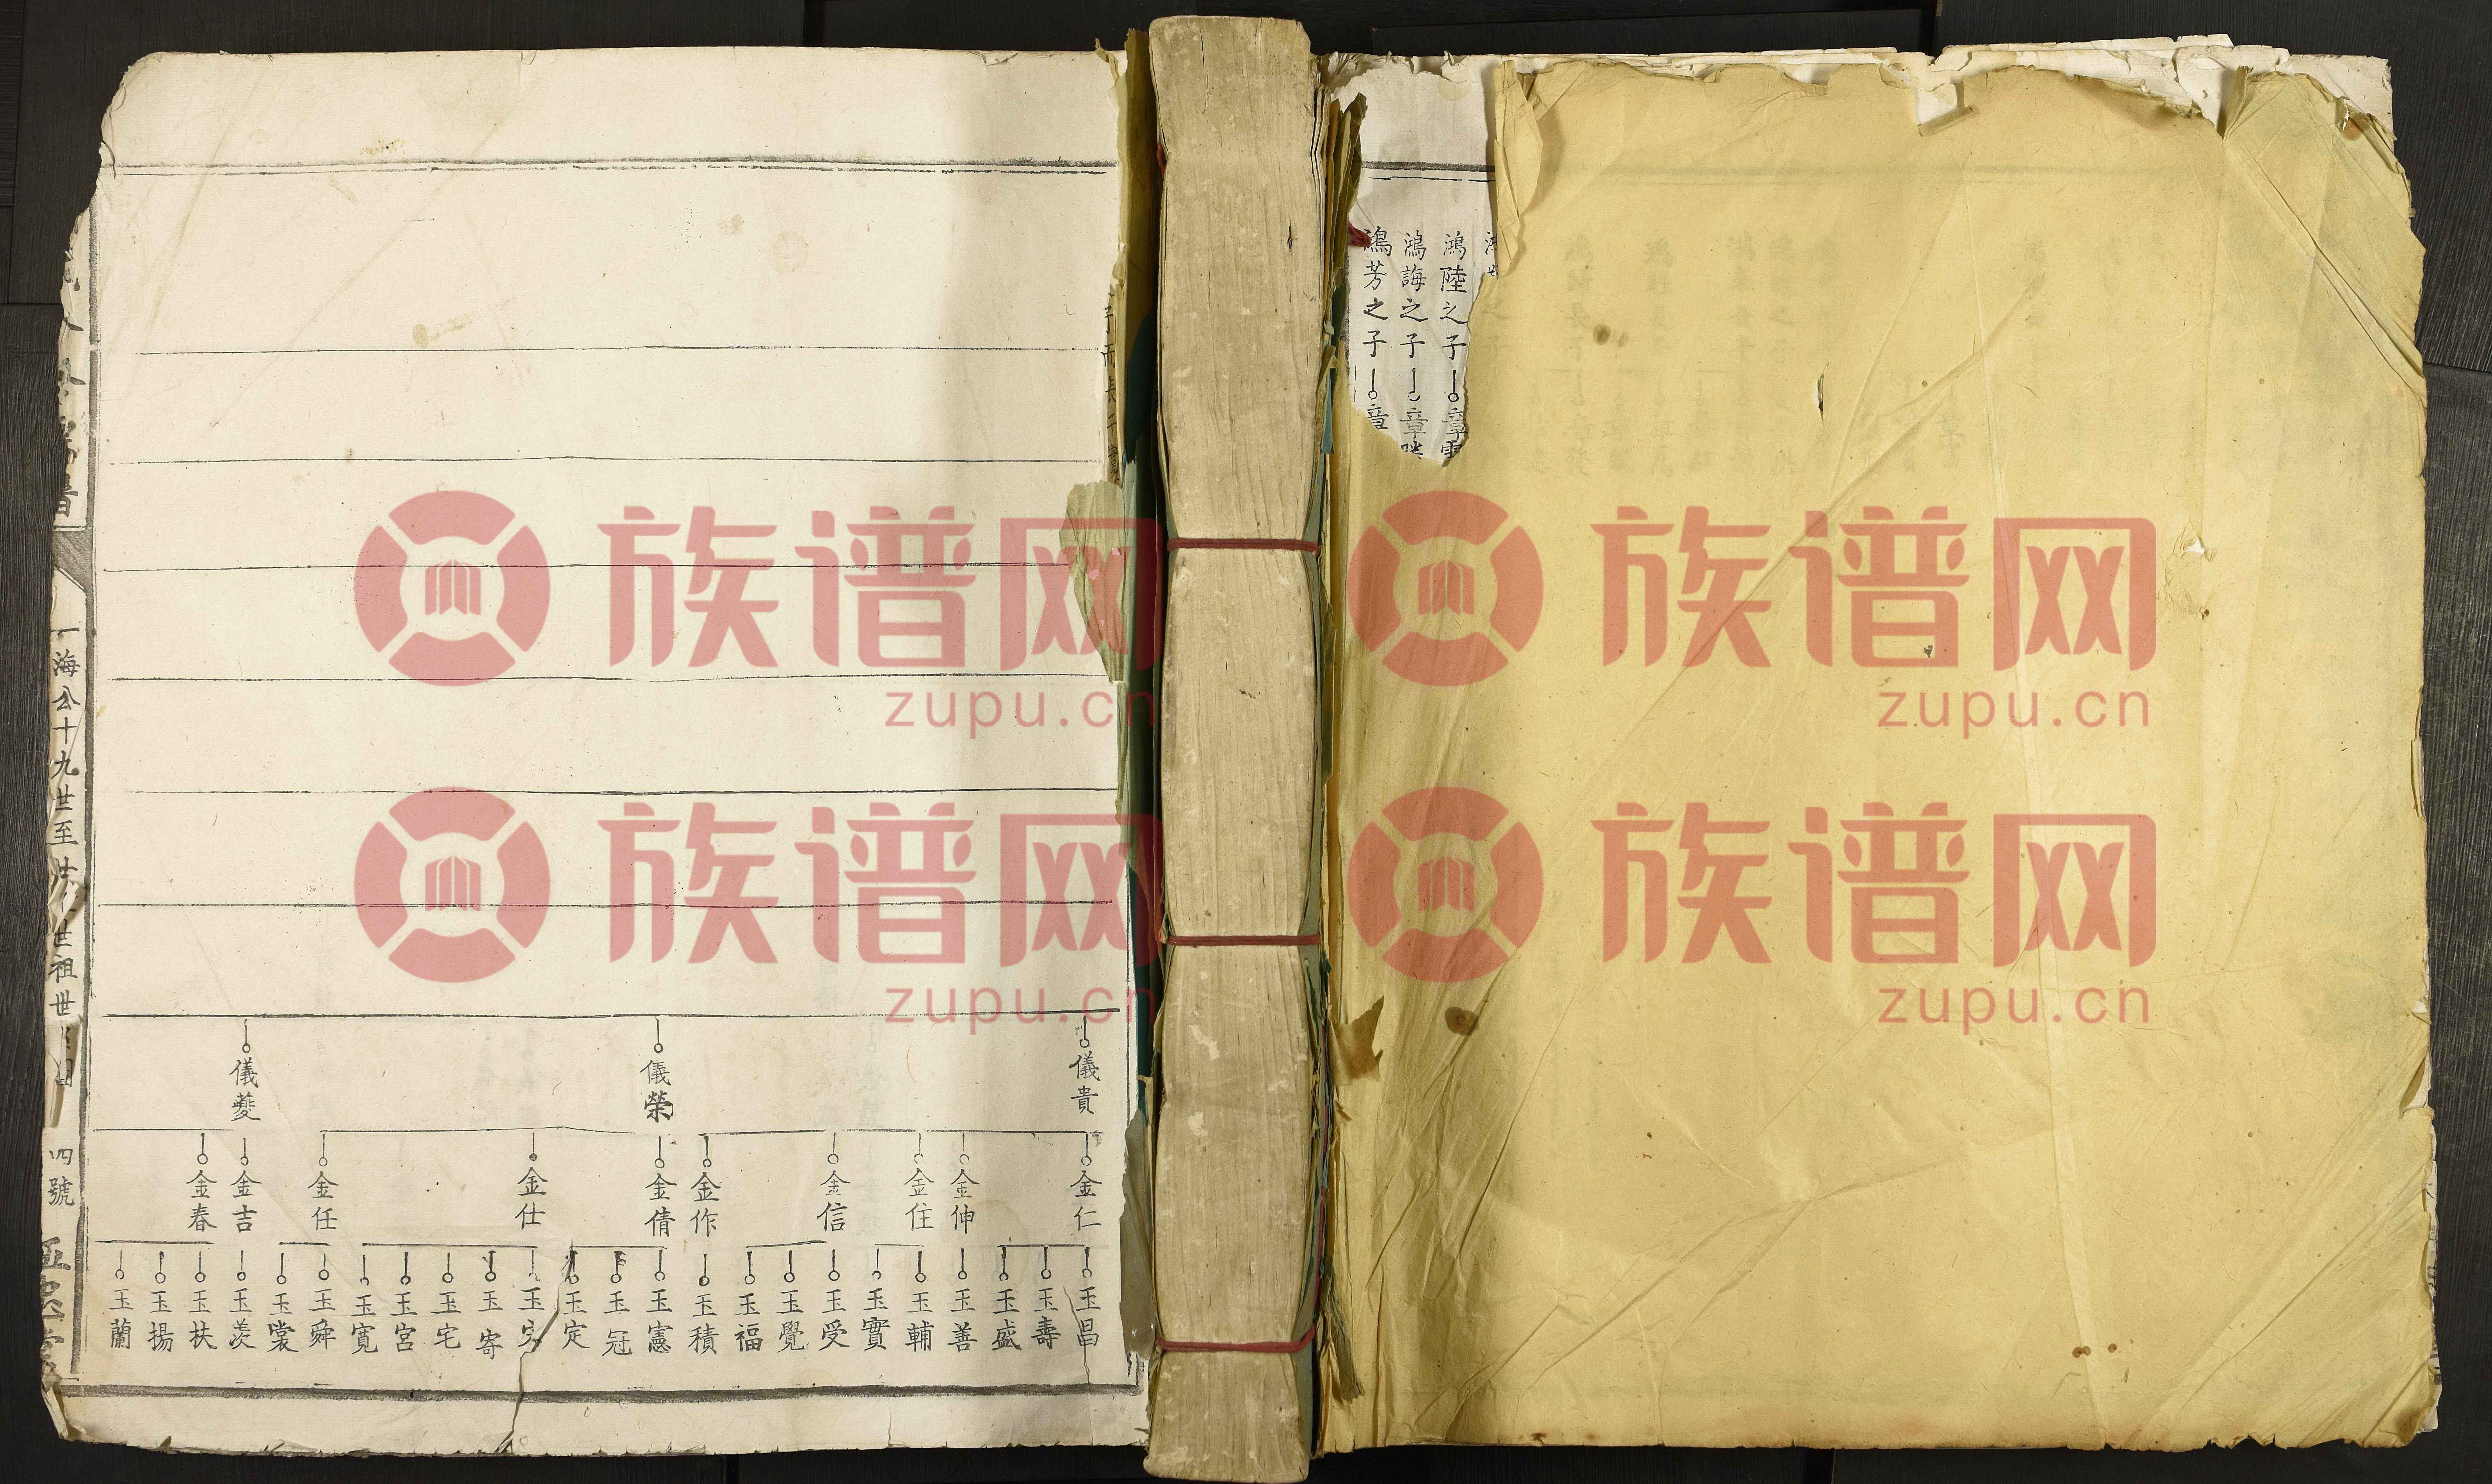 鴻陸之子
章
鴻誨之子
章
鴻芳之子
章
儀貴
儀榮
儀夔
金仁
金伸
金住
金信
金作
金倩
金仕
金任
金吉
金春
玉昌
玉壽
玉盛
玉善
玉輔
玉實
玉受
玉覺
玉福
玉積
玉憲
玉冠
玉定
玉
玉寄
玉宅
玉宮
玉寬
玉舜
玉裳
玉羨
玉扶
玉揚
玉蘭
譜
一海公十九世至廿 世祖世
四號
族谱网
zupu.cn
族谱网
zupu.cn
族谱网
zupu.cn
族谱网
zupu.cn